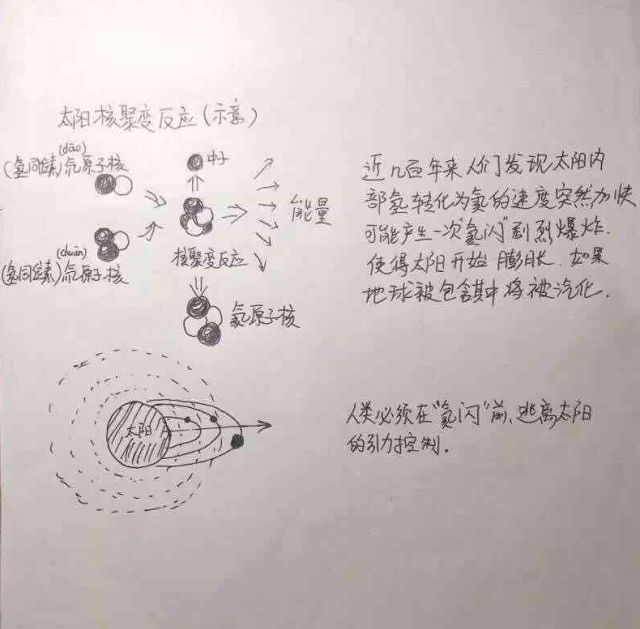 太阳核聚变反应(示意)
(dāo)
(氢同位素)氘原子核
中子
能量
(chuān)
(氢同位素)氚原子核
核聚变反应
氦原子核
近几百年来人们发现太阳内
部氢转化为氦的速度突然加快
可能产生一次"氦闪"剧烈爆炸.
使得太阳开始膨胀.如果
地球被包含其中将被汽化.
太阳
人类必须在"氦闪"前,逃离太阳
的引力控制.